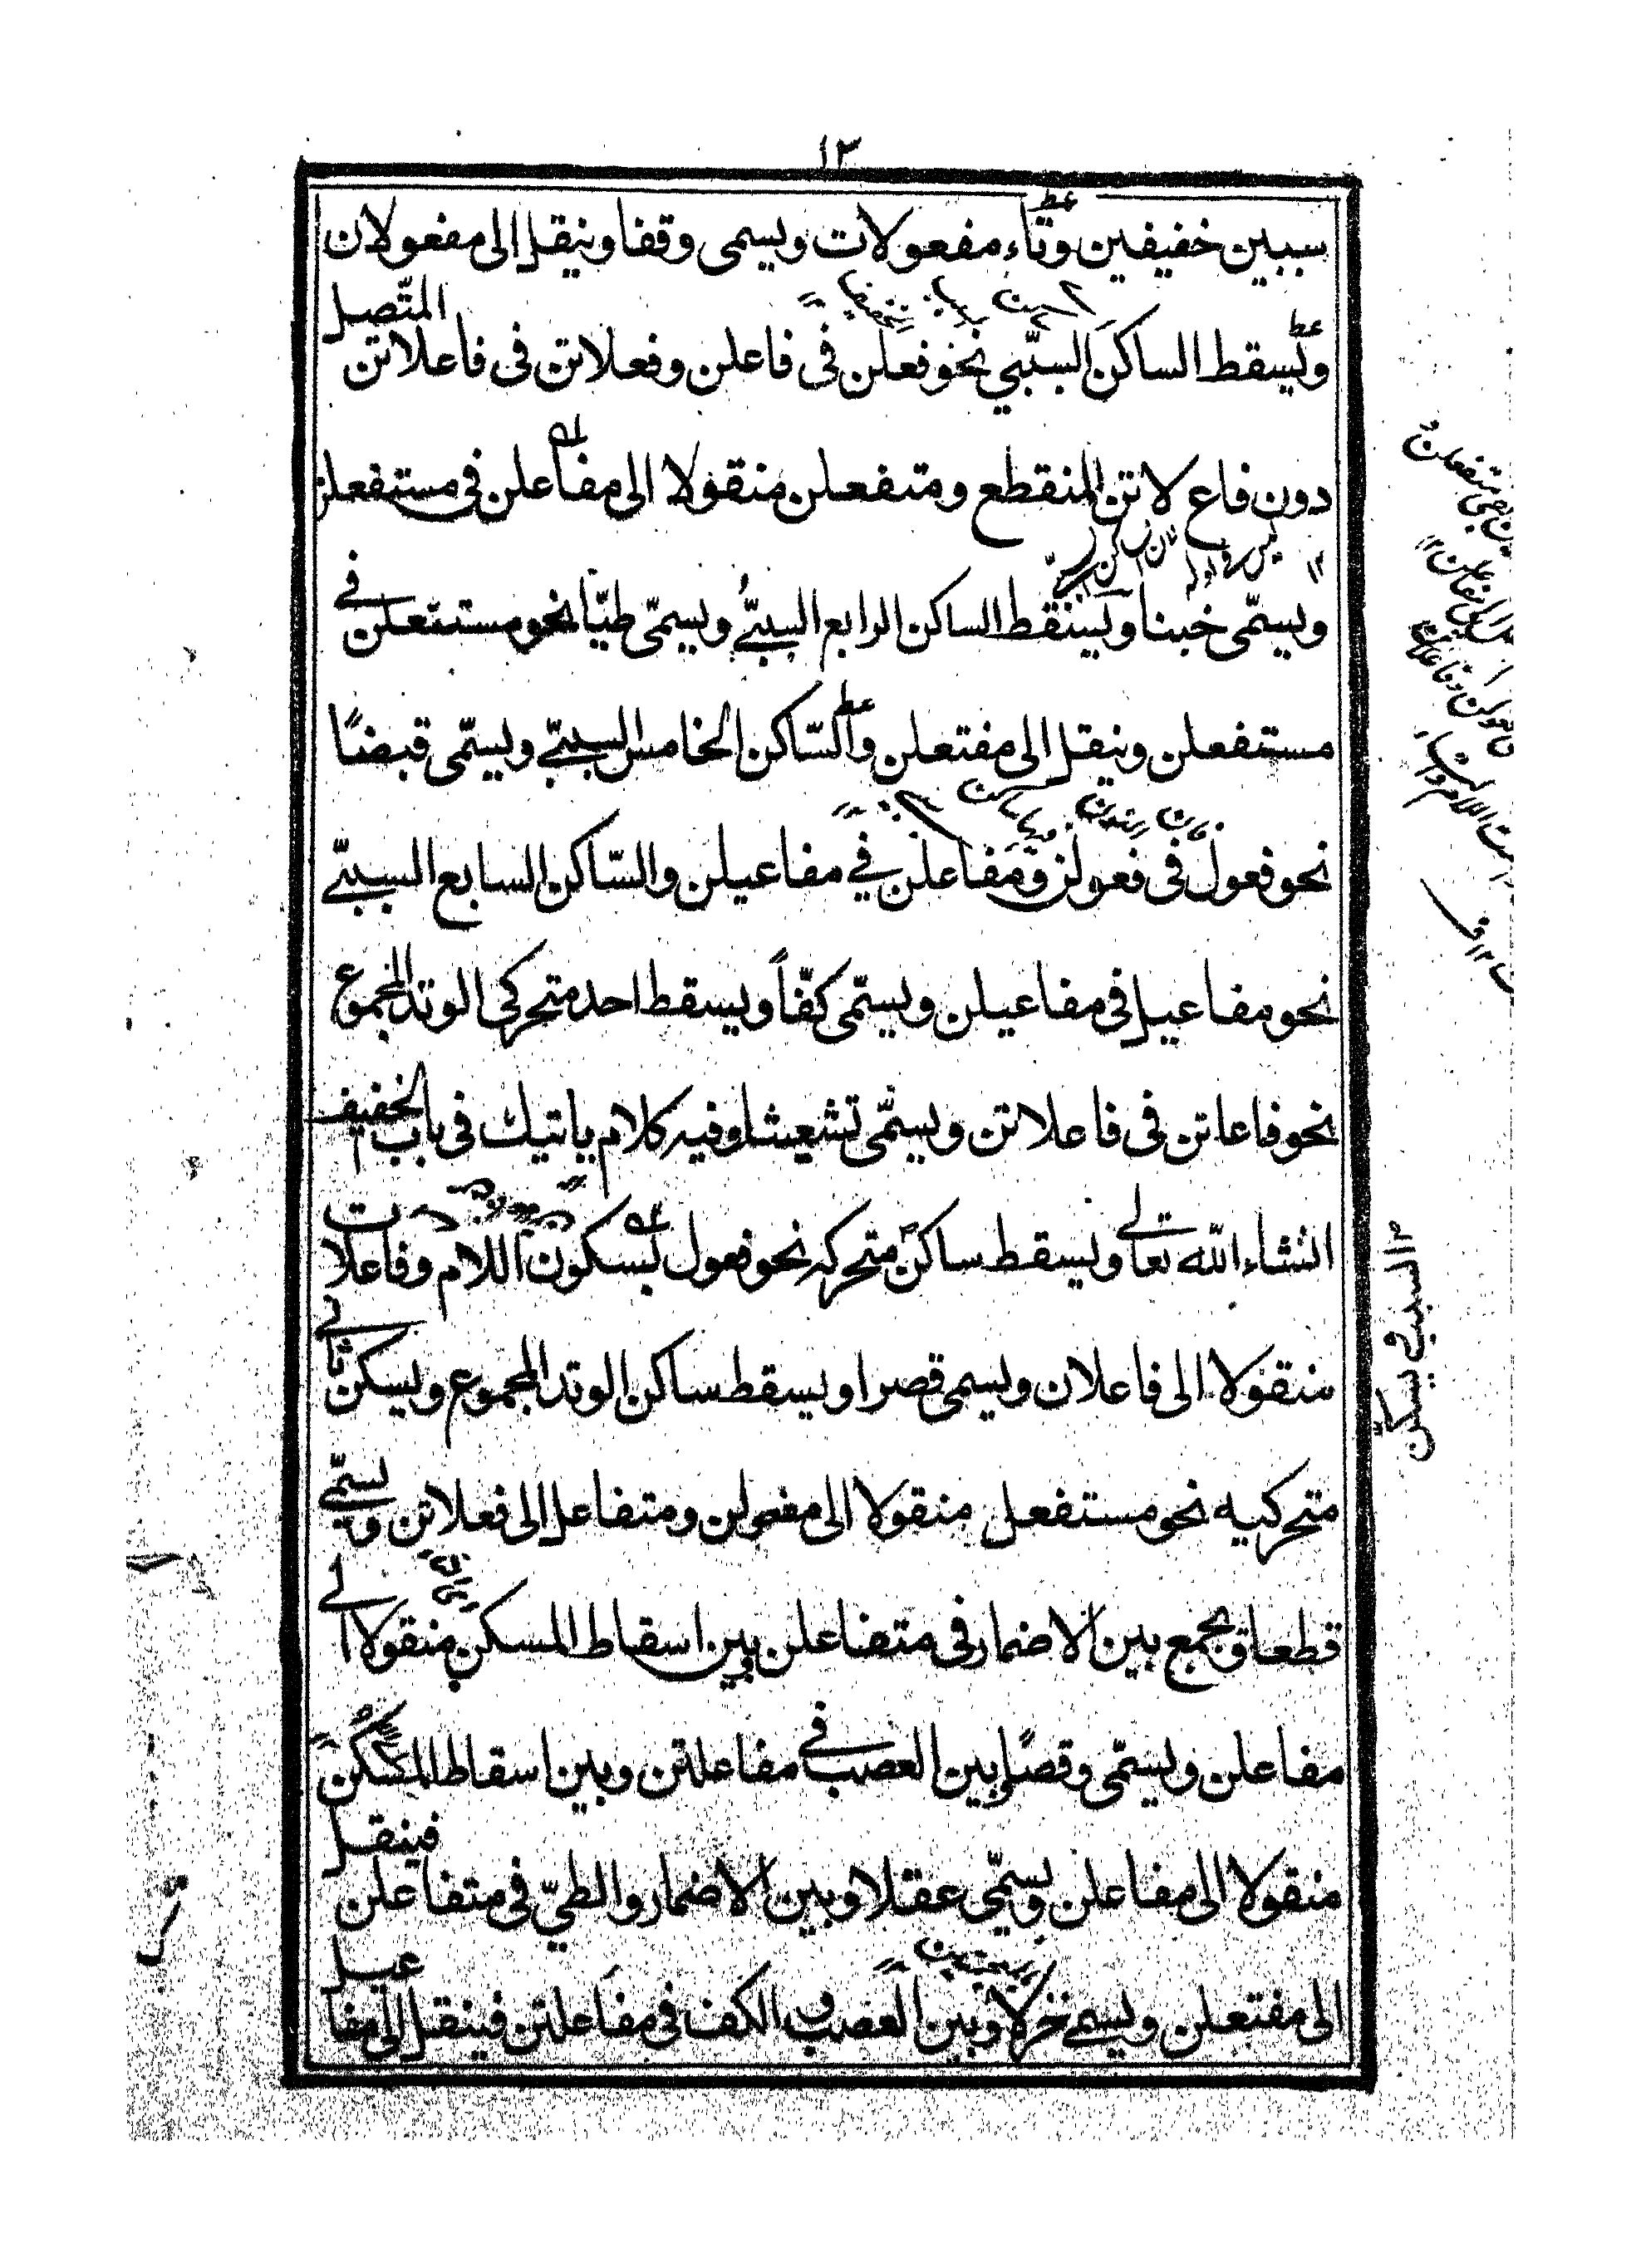 ١٢
سببين خفيفين وتاء مفعولات ويسمى وقفا وينقل الى مفعولان
ويسقط الساكن السببي نحو فعلن فى فاعلن وفعلاتن فى فاعلاتن المتصل
دون فاع لاتن المنقطع ومتفعلن منقولا الى مفاعلن فى مستفعلن
ويسمّى خبنا ويسقط الساكن الرابع السببي ويسمّى طيّا نحو مستعلن فى
مستفعلن وينقل الى مفتعلن والسّاكن الخامس السببي ويسمّى قبضًا
نحو فعول فى فعولن ومفاعلن فى مفاعيلن والسّاكن السابع السببي
نحو مفاعيل فى مفاعيلن ويسمّى كفّاً ويسقط احد متحركى الوتد المجموع
نحو فاعاتن فى فاعلاتن ويسمّى تشعيثا وفيه كلام ياتيك فى باب الخفيف
انشاء الله تعالى ويسقط ساكن متحركه نحو فعول بسكون اللام وفاعلات
منقولا الى فاعلان ويسمى قصرا ويسقط ساكن الوتد المجموع ويسكن ثانى
متحركيه نحو مستفعل منقولا الى مفعولن ومتفاعل الى فعلاتن ويسمّى
قطعا ويجمع بين الاضمار فى متفاعلن وبين اسقاط المسكن منقولا الى
مفاعلن ويسمّى وقصًا وبين العصب فى مفاعلتن وبين اسقاط المسكن
منقولا الى مفاعلن ويسمّى عقلا وبين الاضمار والطيّ فى متفاعلن فينقل
الى مفتعلن ويسمى خزلا وبين العصب والكف فى مفاعلتن فينقل الى مفاعيل